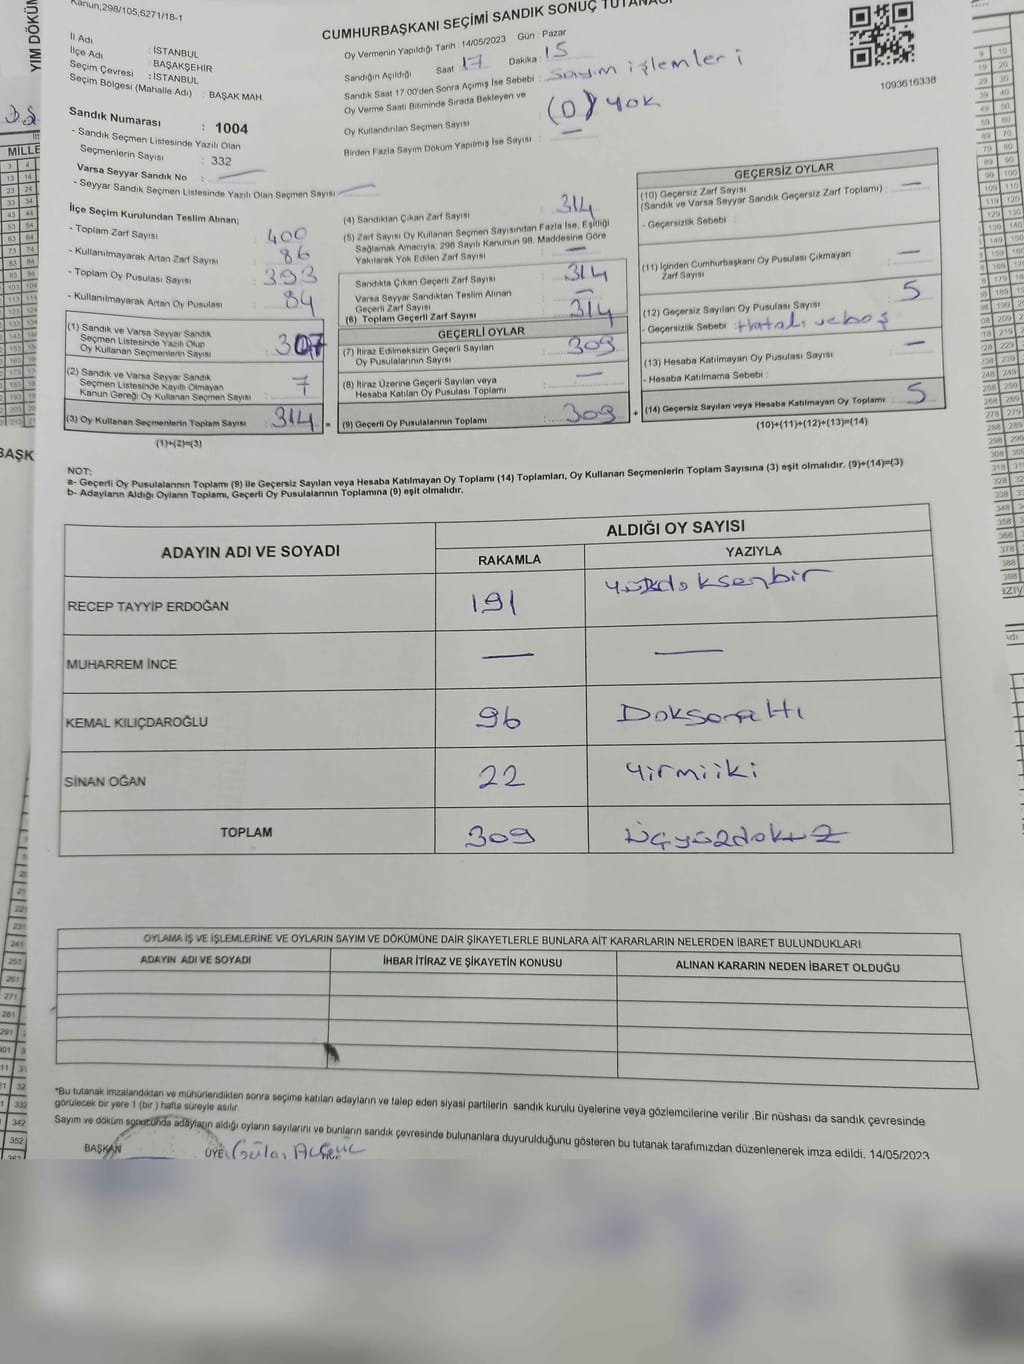 Kanun,298/105,6271/18-1
CUMHURBAŞKANI SEÇİMİ SANDIK SONUÇ TUTANAĞI
YIM DÖKÜM
İl Adı : İSTANBUL
İlçe Adı : BAŞAKŞEHİR
Seçim Çevresi : İSTANBUL
Seçim Bölgesi (Mahalle Adı) : BAŞAK MAH
Oy Vermenin Yapıldığı Tarih : 14/05/2023 Gün : Pazar
Sandığın Açıldığı Saat 17 Dakika : 15
Sandık Saat 17:00'den Sonra Açımış İse Sebebi : Sayım işlemleri
Oy Verme Saati Bitiminde Sırada Bekleyen ve
Oy Kullandırılan Seçmen Sayısı : (0) yok
Birden Fazla Sayım Döküm Yapılmış İse Sayısı : —
1093616338
Sandık Numarası : 1004
- Sandık Seçmen Listesinde Yazılı Olan
Seçmenlerin Sayısı : 332
Varsa Seyyar Sandık No : —
- Seyyar Sandık Seçmen Listesinde Yazılı Olan Seçmen Sayısı: —
İlçe Seçim Kurulundan Teslim Alınan;
- Toplam Zarf Sayısı : 400
- Kullanılmayarak Artan Zarf Sayısı : 86
- Toplam Oy Pusulası Sayısı : 393
- Kullanılmayarak Artan Oy Pusulası : 84
(1) Sandık ve Varsa Seyyar Sandık
Seçmen Listesinde Yazılı Olup
Oy Kullanan Seçmenlerin Sayısı : 307
(2) Sandık ve Varsa Seyyar Sandık
Seçmen Listesinde Kayıtlı Olmayan
Kanun Gereği Oy Kullanan Seçmen Sayısı : 7
(3) Oy Kullanan Seçmenlerin Toplam Sayısı : 314
(1)+(2)=(3)
(4) Sandıktan Çıkan Zarf Sayısı : 314
(5) Zarf Sayısı Oy Kullanan Seçmen Sayısından Fazla İse, Eşitliği
Sağlamak Amacıyla, 298 Sayılı Kanunun 98. Maddesine Göre
Yakılarak Yok Edilen Zarf Sayısı : —
Sandıkta Çıkan Geçerli Zarf Sayısı : 314
Varsa Seyyar Sandıktan Teslim Alınan
Geçerli Zarf Sayısı : —
(6) Toplam Geçerli Zarf Sayısı : 314
GEÇERLİ OYLAR
(7) İtiraz Edilmeksizin Geçerli Sayılan
Oy Pusulalarının Sayısı : 309
(8) İtiraz Üzerine Geçerli Sayılan veya
Hesaba Katılan Oy Pusulası Toplamı : —
(9) Geçerli Oy Pusulalarının Toplamı : 309
GEÇERSİZ OYLAR
(10) Geçersiz Zarf Sayısı
(Sandık ve Varsa Seyyar Sandık Geçersiz Zarf Toplamı) : —
- Geçersizlik Sebebi :
(11) İçinden Cumhurbaşkanı Oy Pusulası Çıkmayan
Zarf Sayısı : —
(12) Geçersiz Sayılan Oy Pusulası Sayısı : 5
- Geçersizlik Sebebi : Hatalı ve boş
(13) Hesaba Katılmayan Oy Pusulası Sayısı : —
- Hesaba Katılmama Sebebi :
(14) Geçersiz Sayılan veya Hesaba Katılmayan Oy Toplamı : 5
(10)+(11)+(12)+(13)=(14)
NOT:
a- Geçerli Oy Pusulalarının Toplamı (9) ile Geçersiz Sayılan veya Hesaba Katılmayan Oy Toplamı (14) Toplamları, Oy Kullanan Seçmenlerin Toplam Sayısına (3) eşit olmalıdır. (9)+(14)=(3)
b- Adayların Aldığı Oyların Toplamı, Geçerli Oy Pusulalarının Toplamına (9) eşit olmalıdır.
ADAYIN ADI VE SOYADI
ALDIĞI OY SAYISI
RAKAMLA YAZIYLA
RECEP TAYYİP ERDOĞAN 191 yüzdoksenbir
MUHARREM İNCE — —
KEMAL KILIÇDAROĞLU 96 Doksanaltı
SİNAN OĞAN 22 Yirmiiki
TOPLAM 309 Üçyüzdokuz
OYLAMA İŞ VE İŞLEMLERİNE VE OYLARIN SAYIM VE DÖKÜMÜNE DAİR ŞİKAYETLERLE BUNLARA AİT KARARLARIN NELERDEN İBARET BULUNDUKLARI
ADAYIN ADI VE SOYADI İHBAR İTİRAZ VE ŞİKAYETİN KONUSU ALINAN KARARIN NEDEN İBARET OLDUĞU
*Bu tutanak imzalandıktan ve mühürlendikten sonra seçime katılan adayların ve talep eden siyasi partilerin sandık kurulu üyelerine veya gözlemcilerine verilir .Bir nüshası da sandık çevresinde
görülecek bir yere 1 (bir ) hafta süreyle asılır.
Sayım ve döküm sonucunda adayların aldığı oyların sayılarını ve bunların sandık çevresinde bulunanlara duyurulduğunu gösteren bu tutanak tarafımızdan düzenlenerek imza edildi. 14/05/2023
BAŞKAN ÜYE